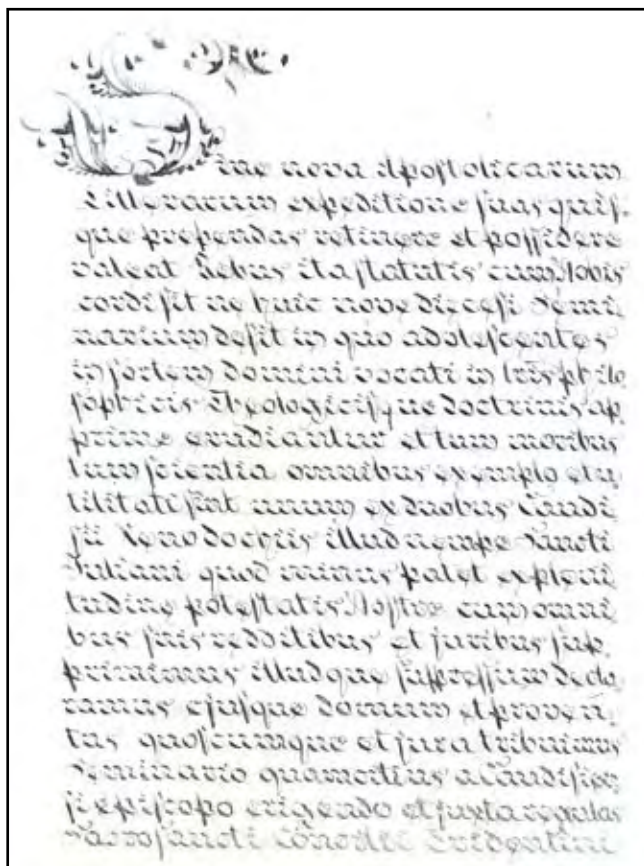 Sine nova Apostolicarum
Litterarum expeditione suas quis-
que prependas retinere et possidere
valeat Rebus ita statutis cum Nobis
cordi sit ne huic nove diecesi Semi
narium desit in quo adolescentes
in sortem domini vocati in lris philo
sophicis Theologicisque doctrinis ap
prime erudiantur et tum moribus
tum scientia omnibus exemplo et u
tilitati sint unum ex duobus Gaudi
sii Xenodochiis illud nempe Sancti
Juliani quod minus patet ex pleni
tudine potestatis Nostre cum omni
bus suis redditibus et juribus sup
primimus illudque suppressum decla
ramus ejusque domum et proven
tus quoscumque et jura tribuimus
Seminario quamocius a Gaudisien
si episcopo erigendo et juxta regulas
Sacrosancti Concilii Tridentini